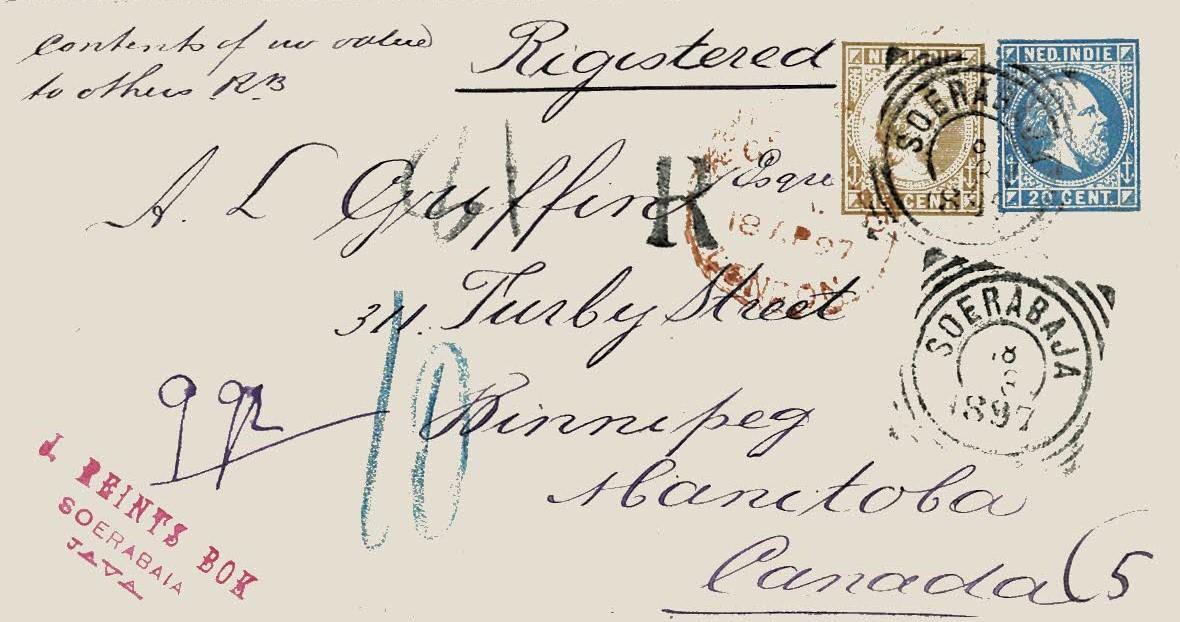 contents of no value
to others RB
Registered
NED. INDIE
CENT.
NED. INDIE
20 CENT.
SOERABAJA
A. L Griffin Esqre
R
18 AP 97
LONDON
311. Furby Street
SOERABAJA
8
1897
10
Winnipeg
Manitoba
Canada
5
J. REINTS BOK
SOERABAIA
JAVA